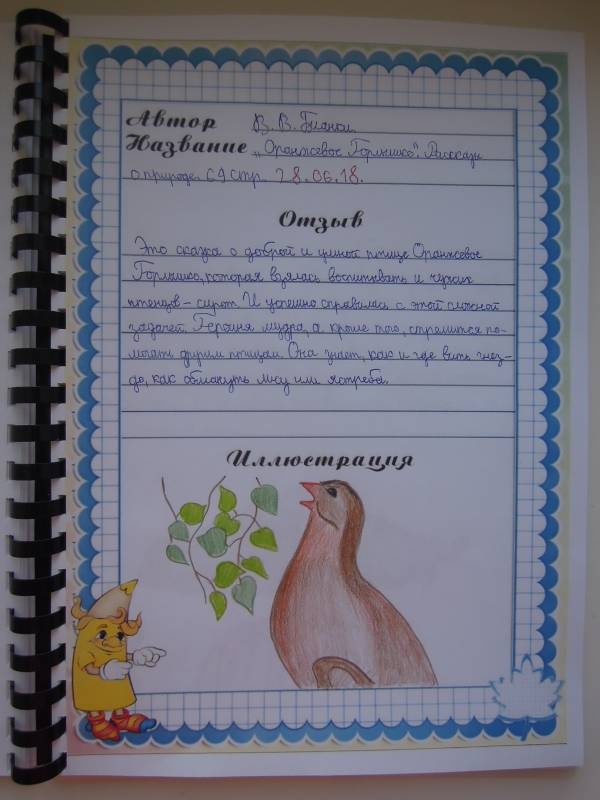 Автор В. В. Бианки
Название „Оранжевое Горлышко". Рассказы
о природе. 69 стр. 28.06.18.
Отзыв
Это сказка о доброй и умной птице Оранжевое
Горлышко, которая взялась воспитывать и чужих
птенцов - сирот. И успешно справилась с этой сложной
задачей. Героиня мудра, а кроме того, стремится по-
могать другим птицам. Она знает, как и где вить гнез-
до, как обмануть лису или ястреба.
Иллюстрация